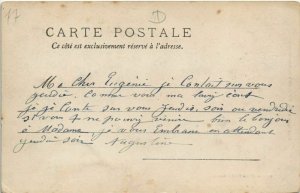 17
D
CARTE POSTALE
Ce côté est exclusivement réservé à l'adresse.
Ma Cher Eugénie je Contait sur vous
jeudis. Comme vois ma
je Conte sur vous Jeudis soir ou vendredi
si vous ne pouvez venir bien le bonjour
à Madame je vous Embrasse en attendant
jeudis soir Augustine